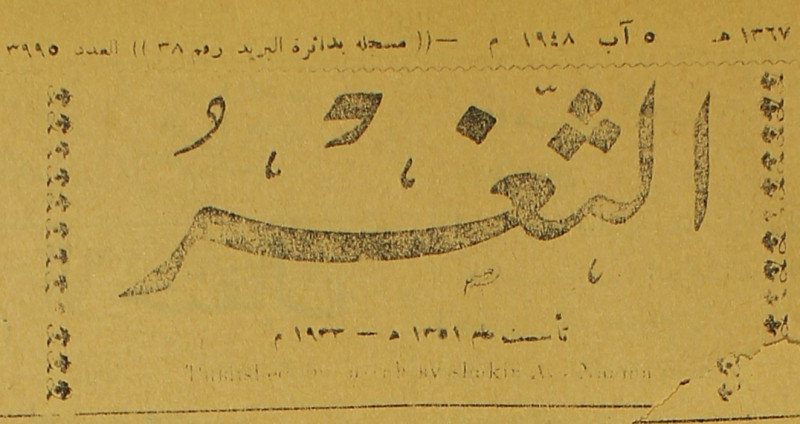 ١٣٦٧ هـ ٥ آب ١٩٤٨ م — (( مسجله بدائرة البريد رقم ٣٨ )) العدد ٣٩٩٥
الثَّغر
تأسست عام ١٣٥١ هـ — ١٩٣٣ م